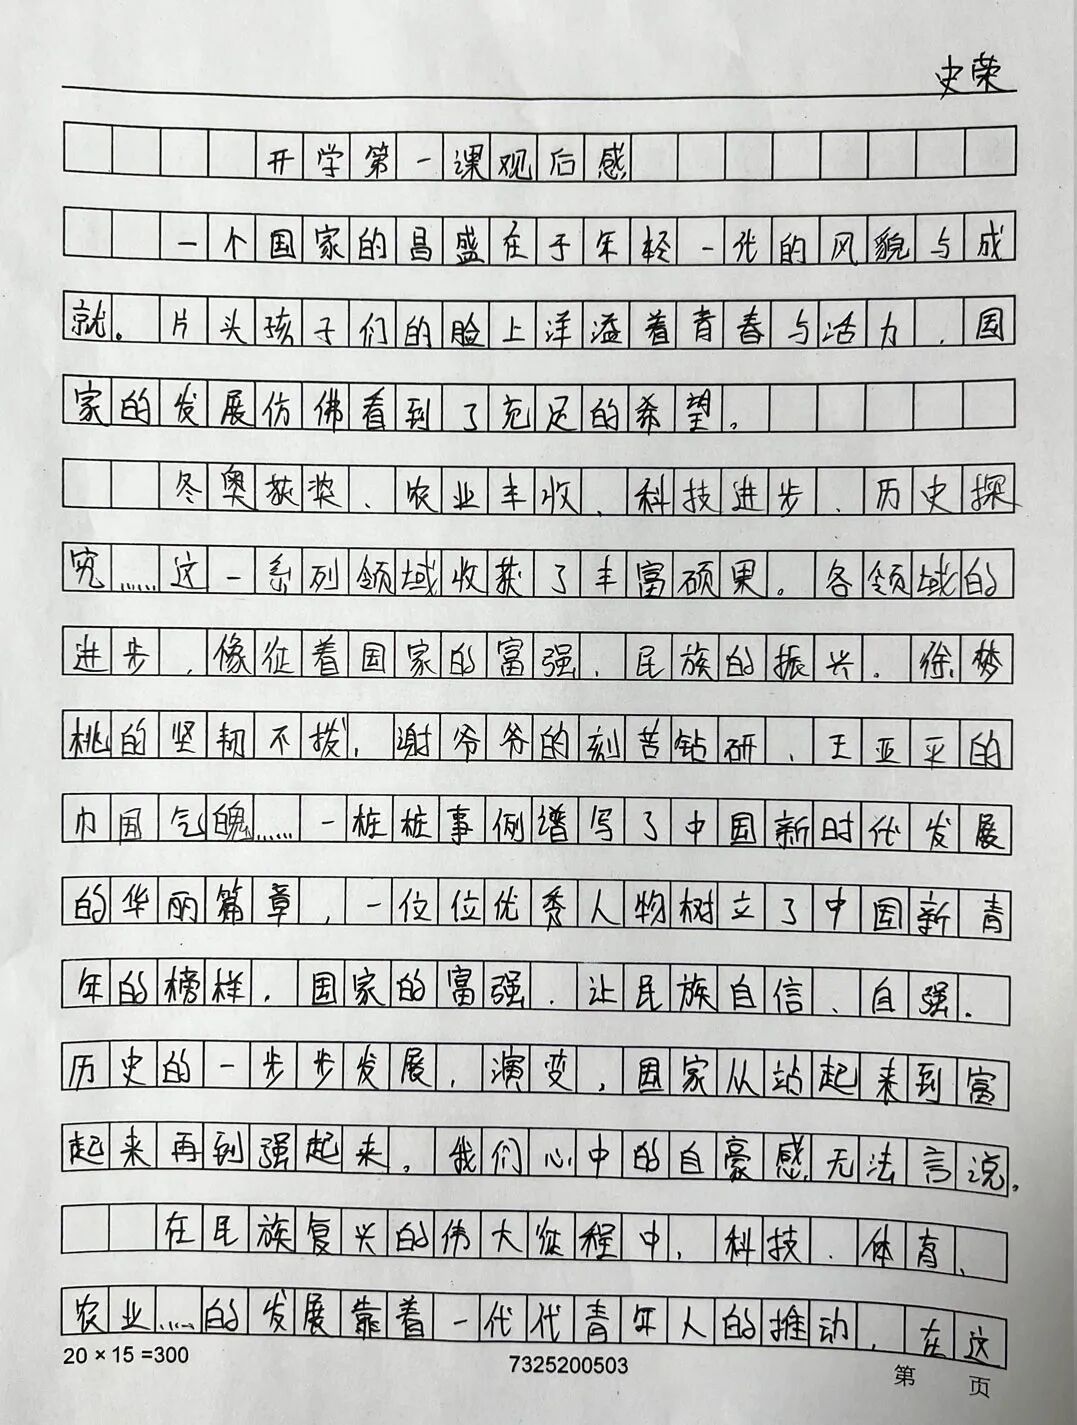 史荣
开学第一课观后感
一个国家的昌盛在于年轻一代的风貌与成
就。片头孩子们的脸上洋溢着青春与活力，国
家的发展仿佛看到了充足的希望。
冬奥获奖、农业丰收、科技进步、历史探
究……这一系列领域收获了丰富硕果。各领域的
进步，像征着国家的富强、民族的振兴。徐梦
桃的坚韧不拔，谢爷爷的刻苦钻研、王亚平的
巾国气魄……一桩桩事例谱写了中国新时代发展
的华丽篇章，一位位优秀人物树立了中国新青
年的榜样。国家的富强，让民族自信、自强。
历史的一步步发展，演变，国家从站起来到富
起来再到强起来。我们心中的自豪感无法言说。
在民族复兴的伟大征程中，科技、体育、
农业……的发展靠着一代代青年人的推动，在这
20×15=300
7325200503
第 页